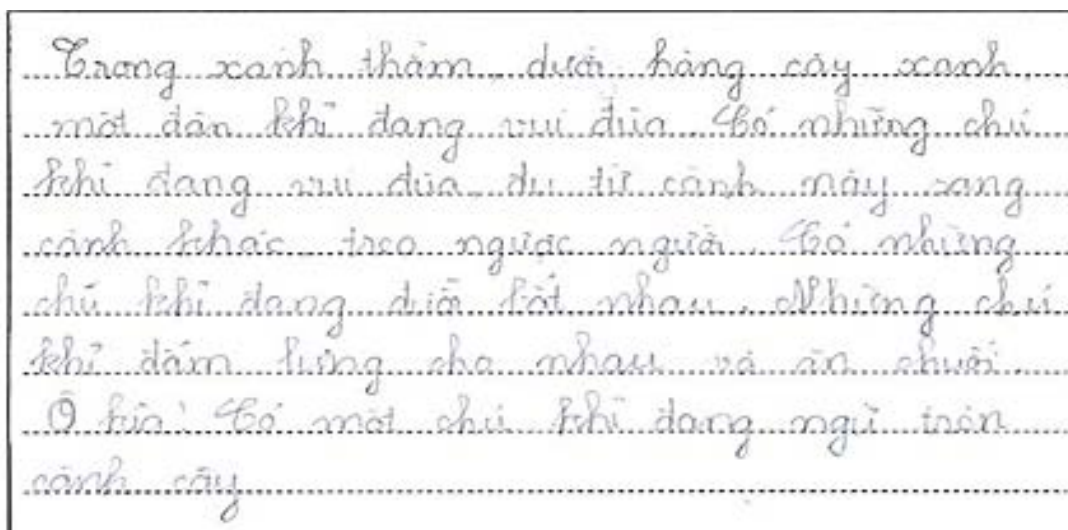 Trong xanh thẳm, dưới hàng cây xanh,
một đàn khỉ đang vui đùa. Có những chú
khỉ đang vui đùa, đu từ cành này sang
cành khác, treo ngược người. Có những
chú khỉ đang đuổi bắt nhau. Những chú
khỉ đấm lưng cho nhau và ăn chuối.
Ồ kìa! Có một chú khỉ đang ngủ trên
cành cây